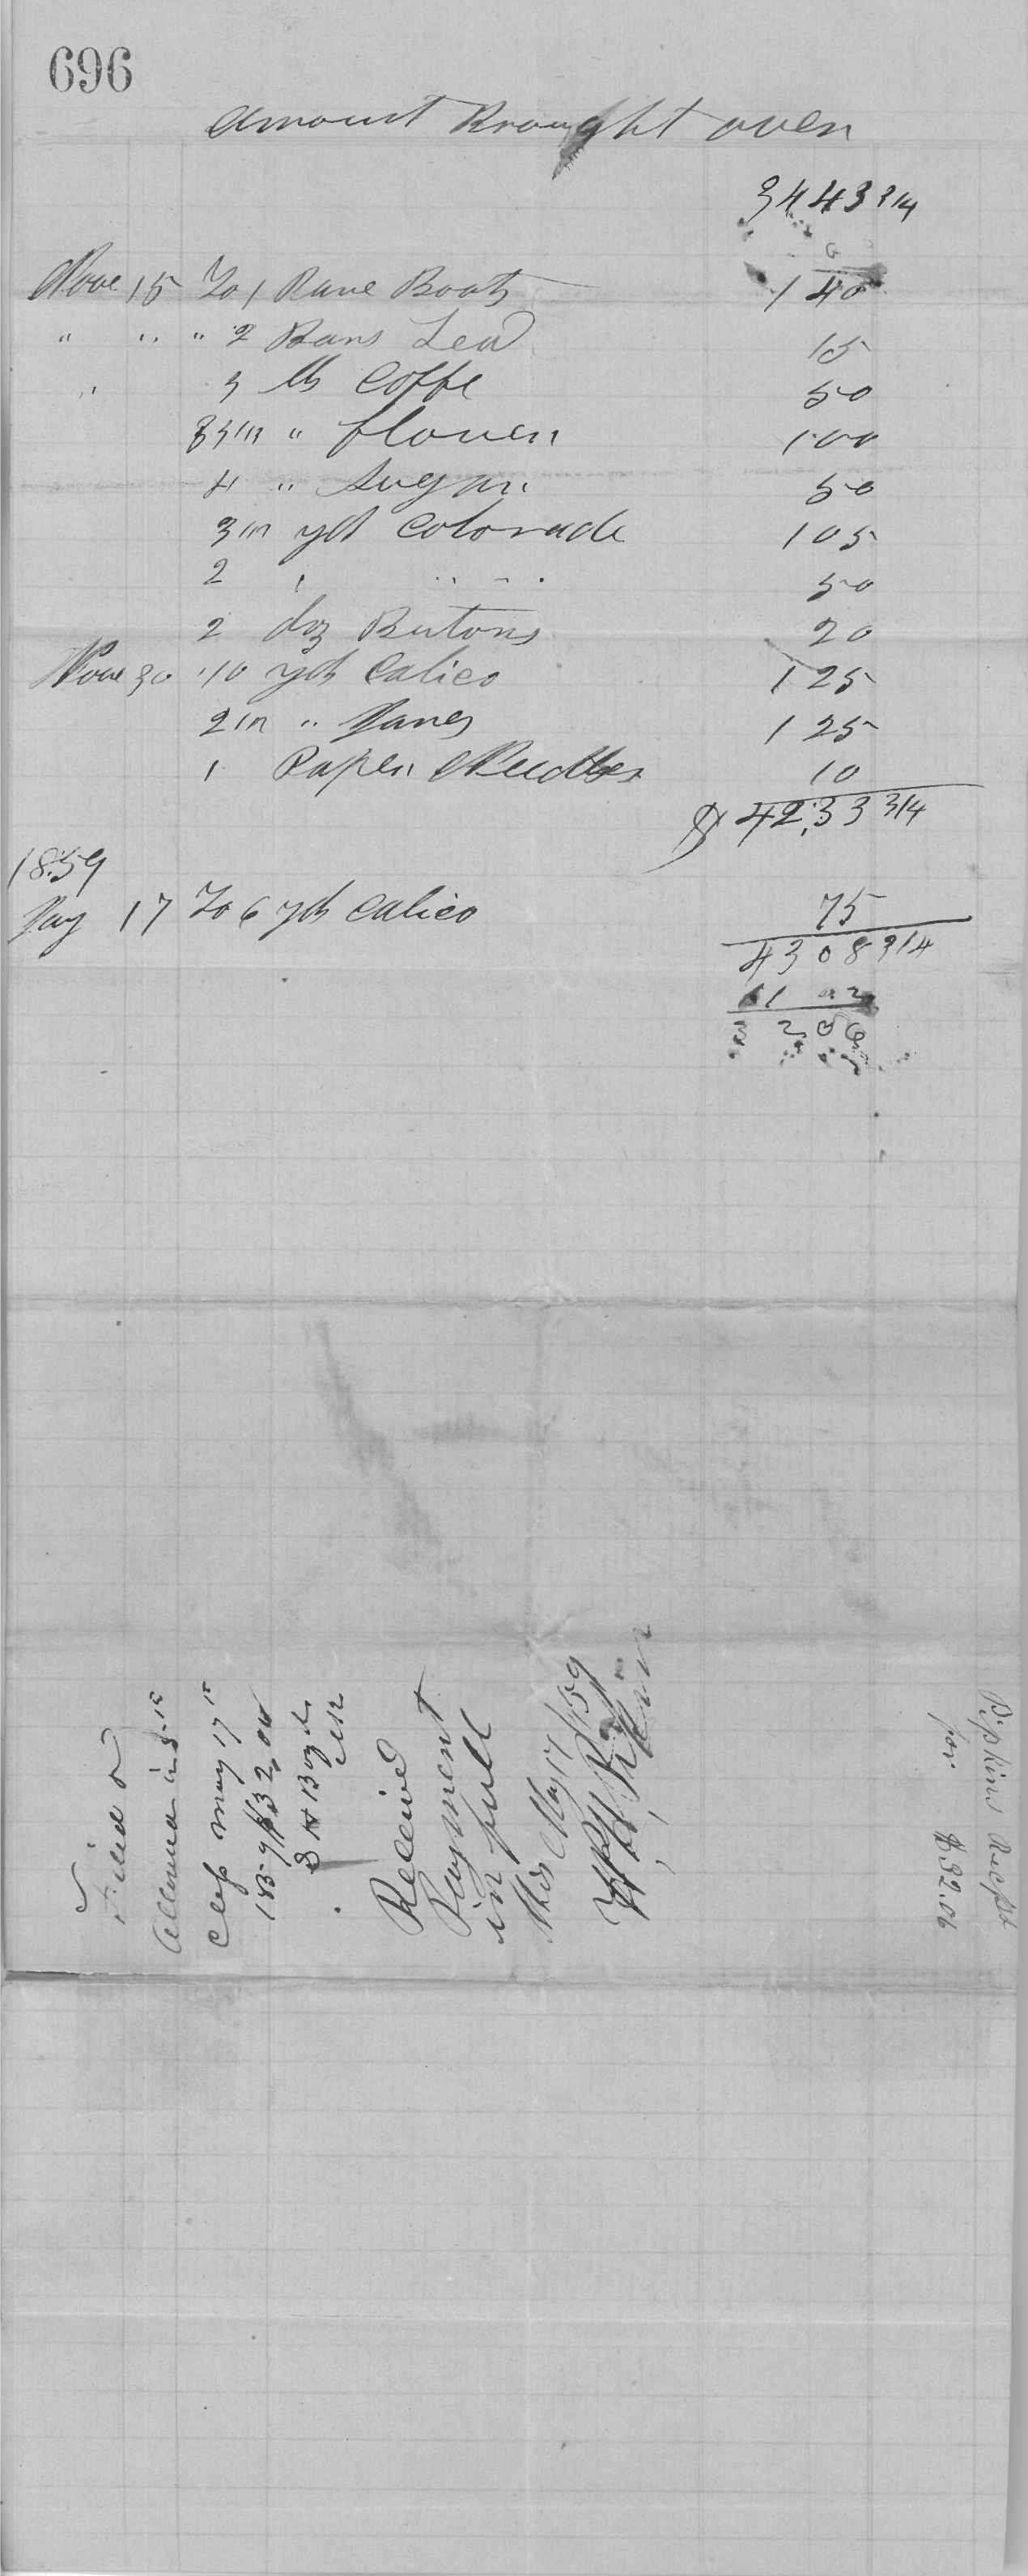 696
Amount Brought over
34 43 3/4
Nove 15 To 1 Pare Boots 1 40
" " " 2 Bars Lead 15
" 3 lb Coffe 50
" flower 100
4 " Sugar 50
3 1/2 yds Cotonade 105
2 " " " 50
2 doz Butons 20
Nove 30 10 yds Calico 1 25
2 1/2 " Janes 1 25
1 Paper Needles 10
$ 42.33 3/4
1859
Jay 17 To 6 yds Calico 75
43 08 3/4
11 02
32 06
Filed &
Allowed in 5th
Clss May 17th
1859 $32.06
Boyd
Clk
Received
Payment
in full
this May 17/59
Pipkins Recpt
for $32.06